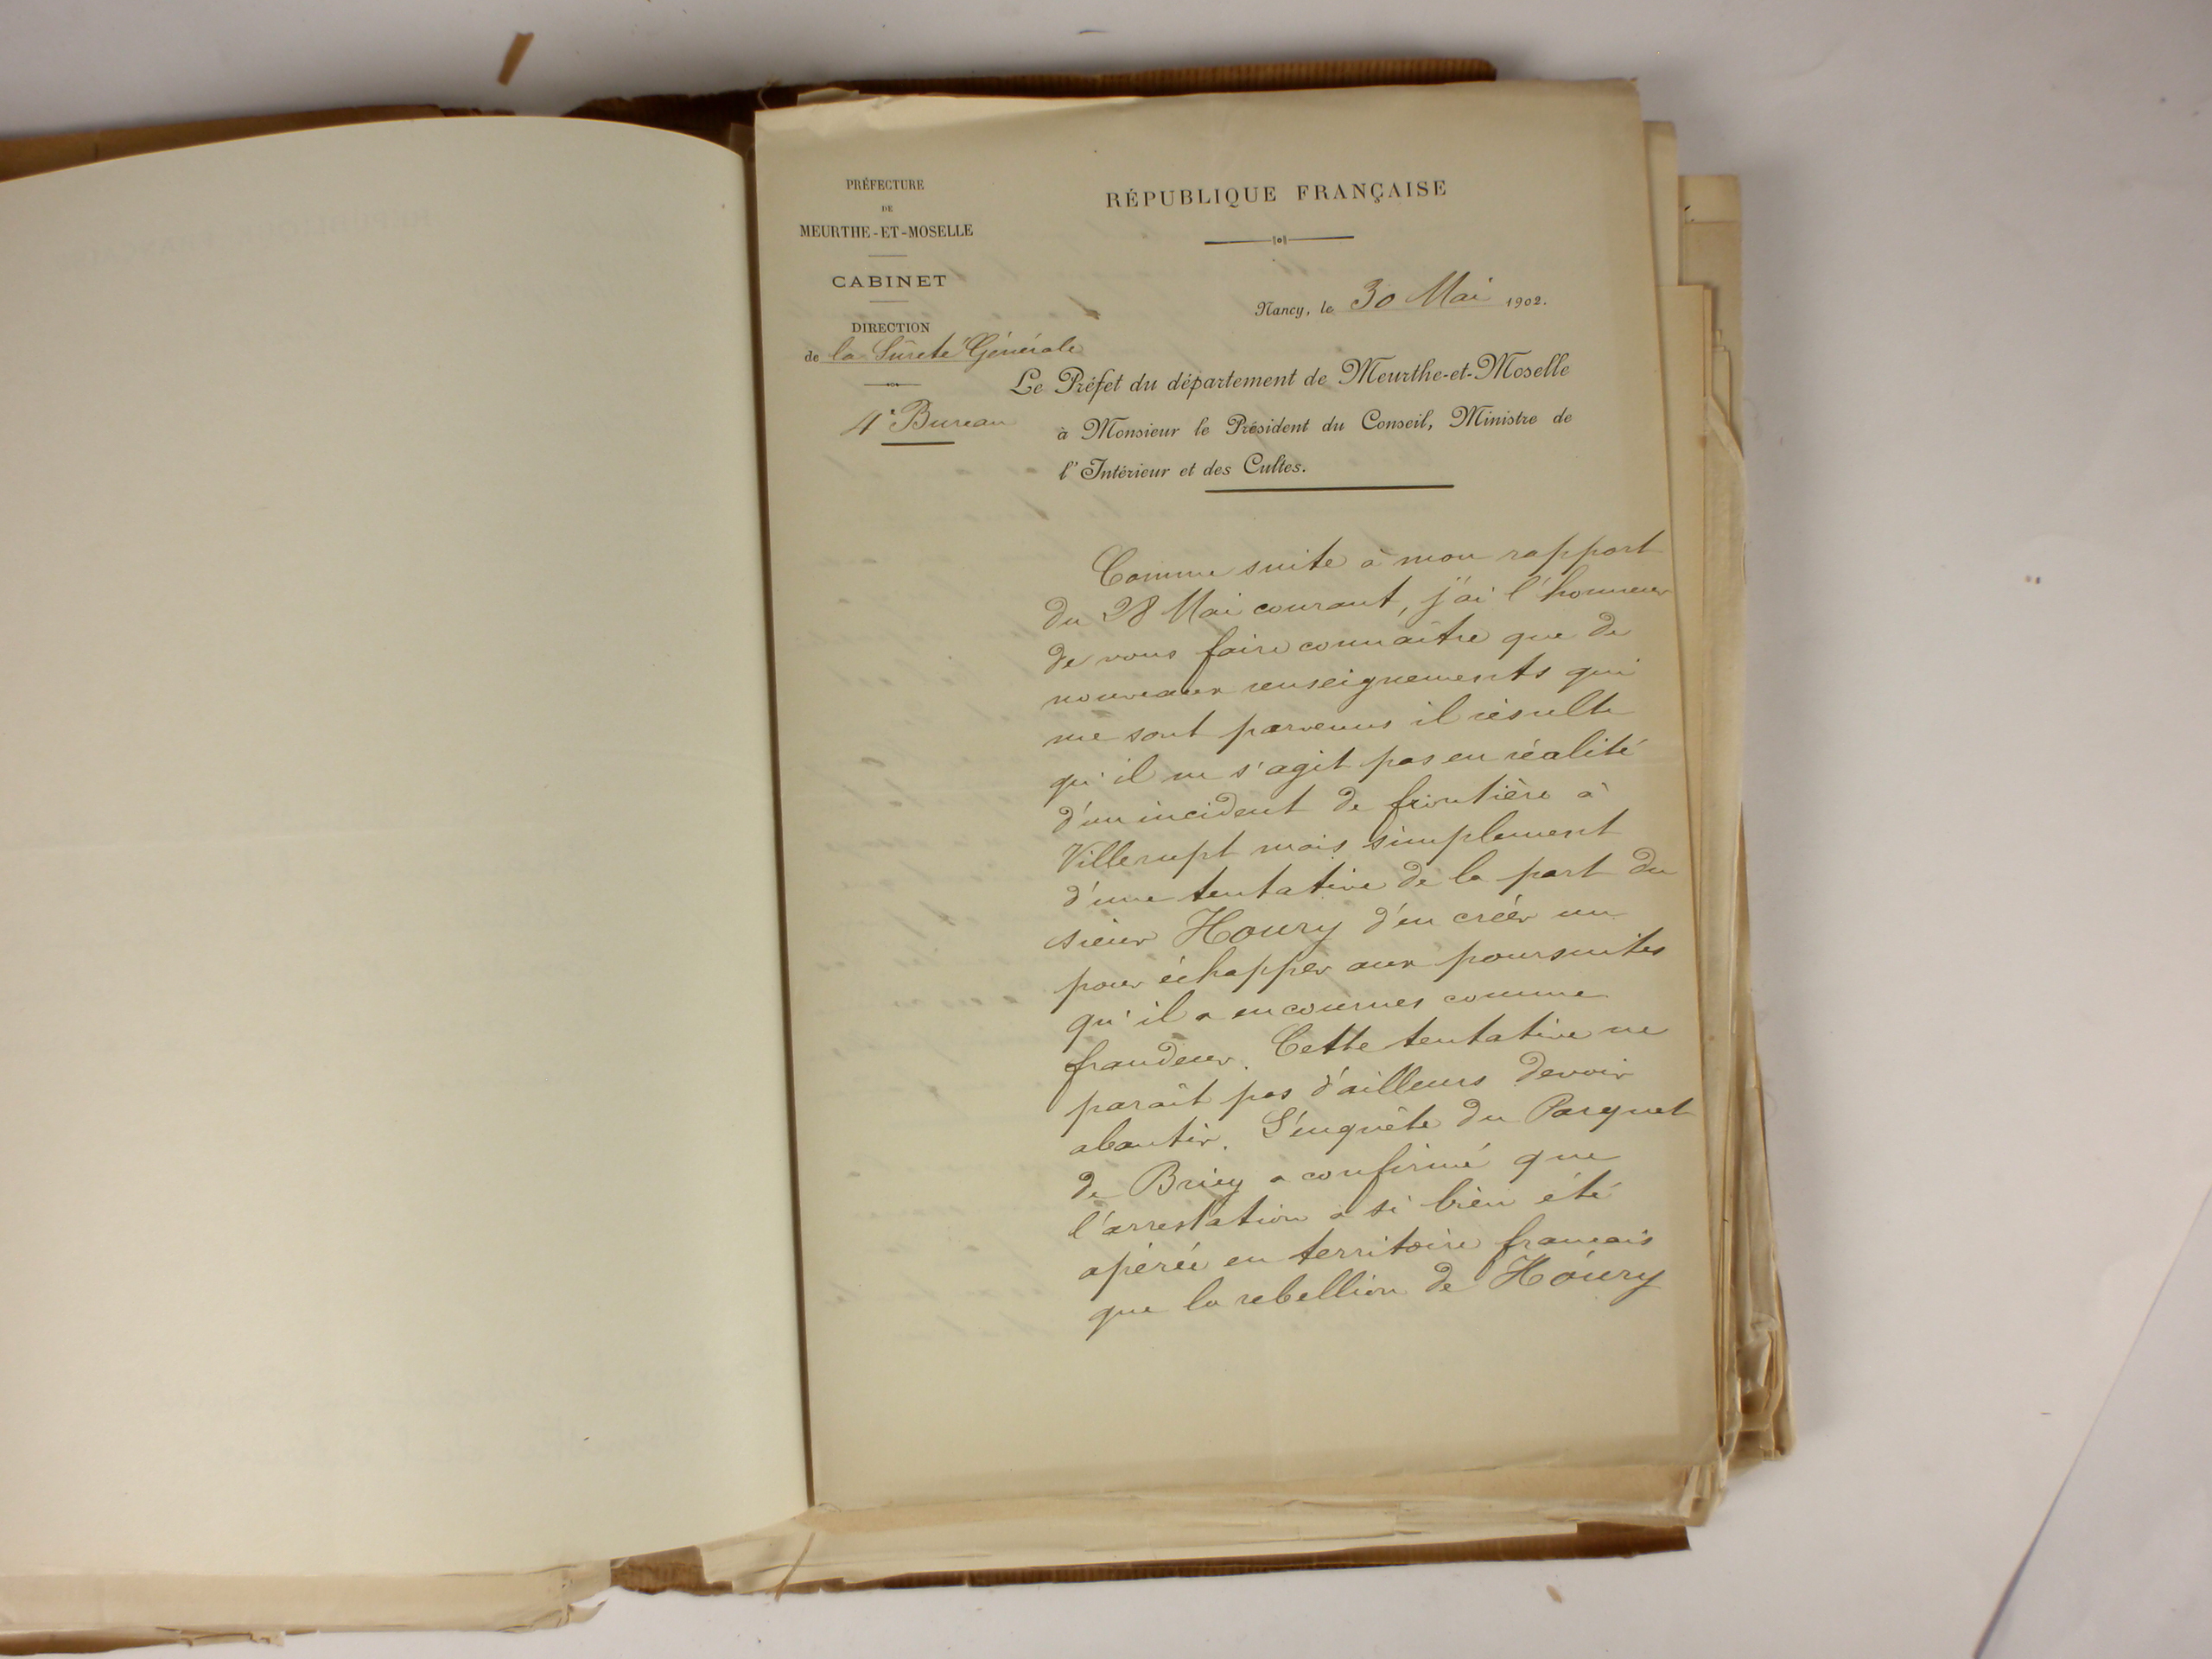 PRÉFECTURE
DE
MEURTHE-ET-MOSELLE
CABINET
DIRECTION
de la Sûreté Générale
4e Bureau
RÉPUBLIQUE FRANÇAISE
Nancy, le 30 Mai 1902.
Le Préfet du département de Meurthe-et-Moselle
à Monsieur le Président du Conseil, Ministre de
l'Intérieur et des Cultes.
Comme suite à mon rapport
du 28 Mai courant, j'ai l'honneur
de vous faire connaître que de
nouveaux renseignements qui
me sont parvenus il résulte
qu'il ne s'agit pas en réalité
d'un incident de frontière à
Villerupt mais simplement
d'une tentative de la part du
sieur Houry d'en créer un
pour échapper aux poursuites
qu'il a encourues comme
fraudeur. Cette tentative ne
paraît pas d'ailleurs devoir
aboutir. L'enquête du Parquet
de Briey a confirmé que
l'arrestation a si bien été
opérée en territoire français
que la rebellion de Houry